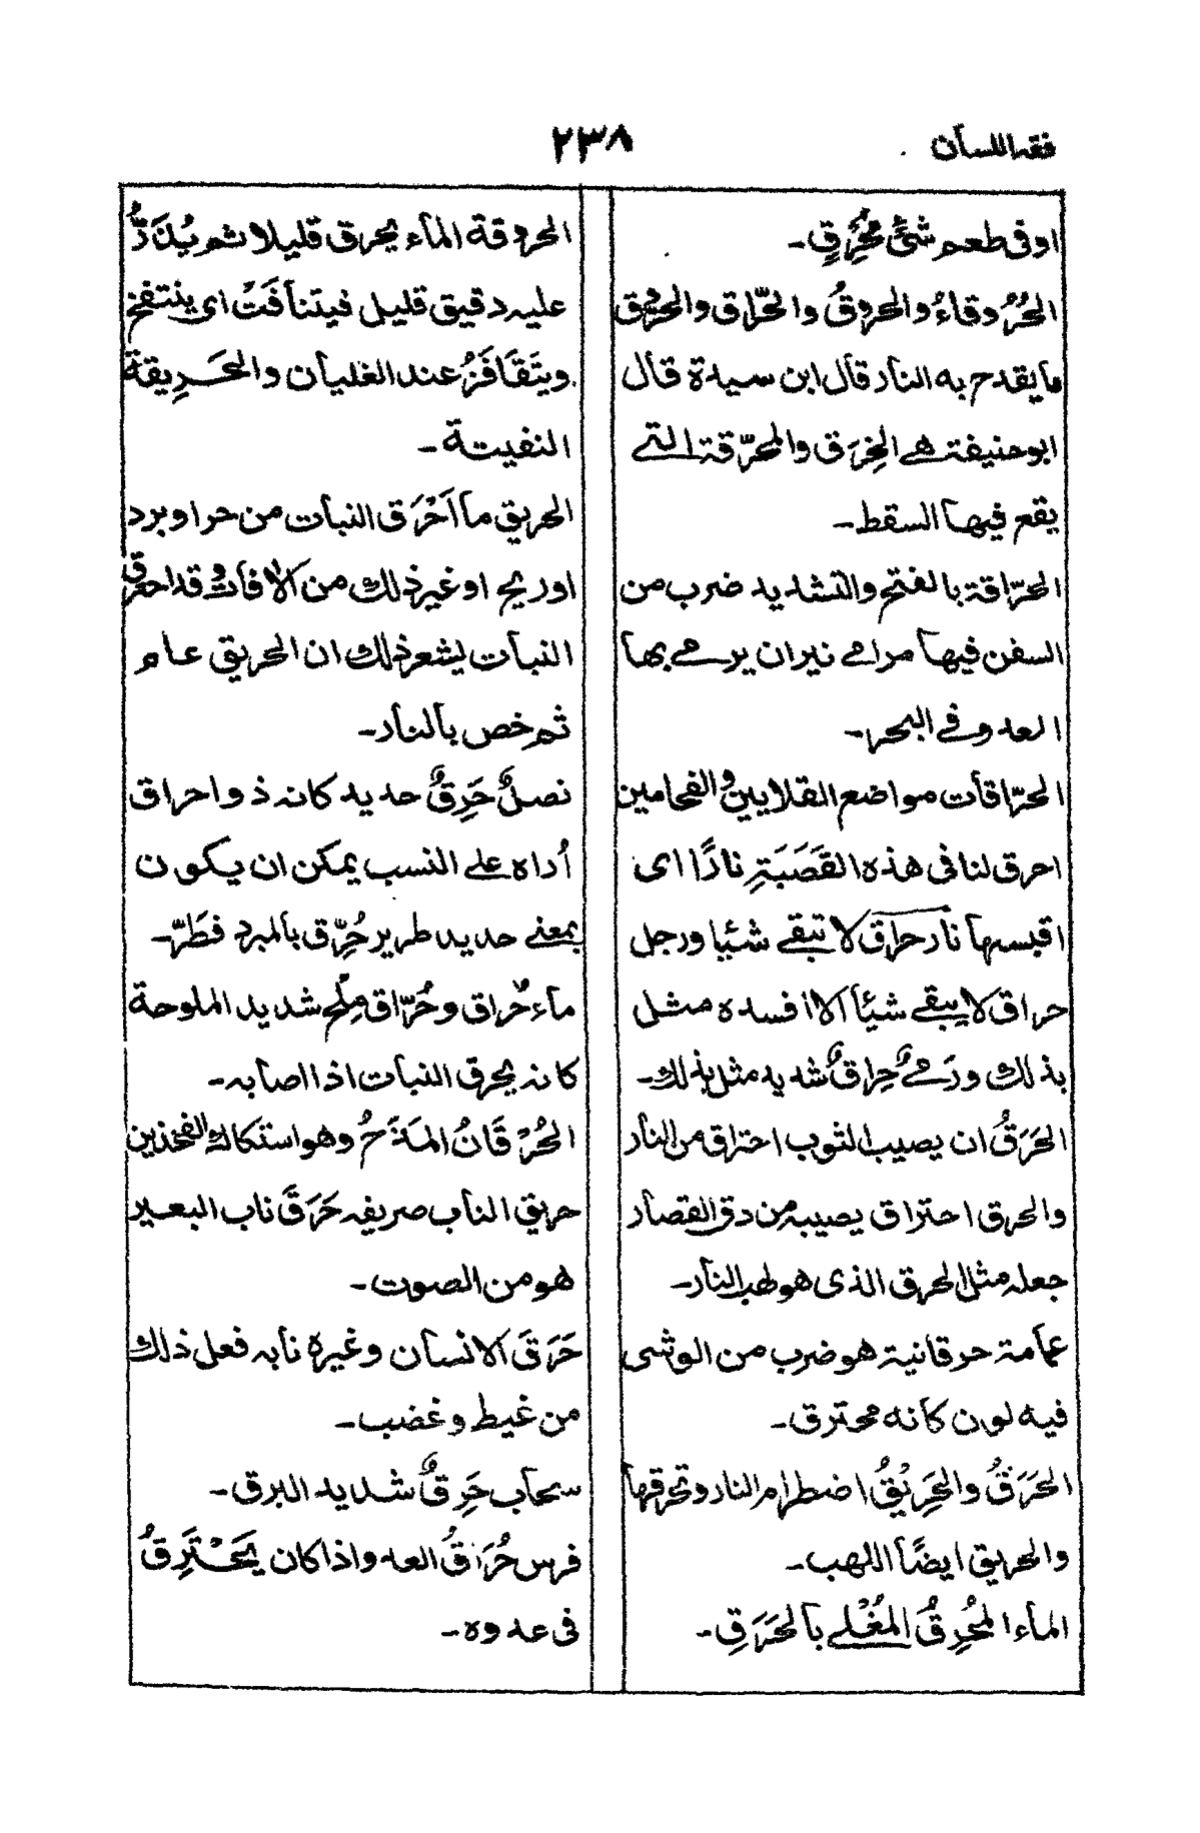 فقہ اللسان
۲۳۸
اوفی طعم شئ مُحْرِقٍ۔
الحُرُوقاءُ والحروقُ والحُرّاق والحرّوق
ما يقدح به النار قال ابن سيدة قال
ابو حنيفة هے الخِرَق والمحرّقة التے
يقع فيها السقط۔
الحرّاقة بالفتح والتشديد ضرب من
السفن فيها مرامے نيران يرمے بها
العدو فے البحر۔
الحرّاقات مواضع القلايين والفحامين
احرق لنا فی هذه القَصَبَةِ نارًا ای
اقبسها نار حراق لا تبقے شئيا ورجل
حراق لا يبقے شيأ الا افسده مثل
بذلك ورَمےٌ حِراقٌ شديد مثل بذلك۔
الحَرَقُ ان يصيب الثوب احتراق من النار
والحرق احتراق يصيبه من دق القصار
جعله مثل الحرق الذی هو لهب النار۔
عمامة حرقانية هو ضرب من الوشی
فيه لون كانه محترق۔
الحَرَقُ والحَرِيْقُ اضطرام النار وتحرقها
والحريق ايضًا اللهب۔
الماء المُحْرِقُ المُغْلے بالحَرَقِ۔
الحروقة الماء يحرق قليلا ثم يُذَرُّ
عليه دقيق قليل فيتنافَتُ ای ينتفخ
ويتَقَافَزُ عند الغليان والحَرِيقة
النفيتة۔
الحريق ما اَحْرَق النبات من حر او برد
او ريح او غير ذلك من الافات وقد احرق
النبات ليشعر ذلك ان الحريق عام
ثم خص بالنار۔
نصلٌ حَرِقٌ حديد كانه ذو احراق
اُراه علے النسب يمكن ان يكون
بمعنے حديد طرير حُرِّق بالمبرد فطَرّ۔
ماء حُراق وحُرّاق مِلْح شديد الملوحة
كانه يحرق النبات اذا اصابه۔
الحُرْقَانُ المَذَحُ وهو استكاك الفخذين
حريق الناب صريفه حَرَقَ ناب البعير
هو من الصوت۔
حَرَقَ الانسان وغيره نابه فعل ذلك
من غيط وغضب۔
سحاب حَرِقٌ شديد البرق۔
فرس حُرَاقُ العدو اذا كان يَحْتَرِقُ
فی عدوه۔